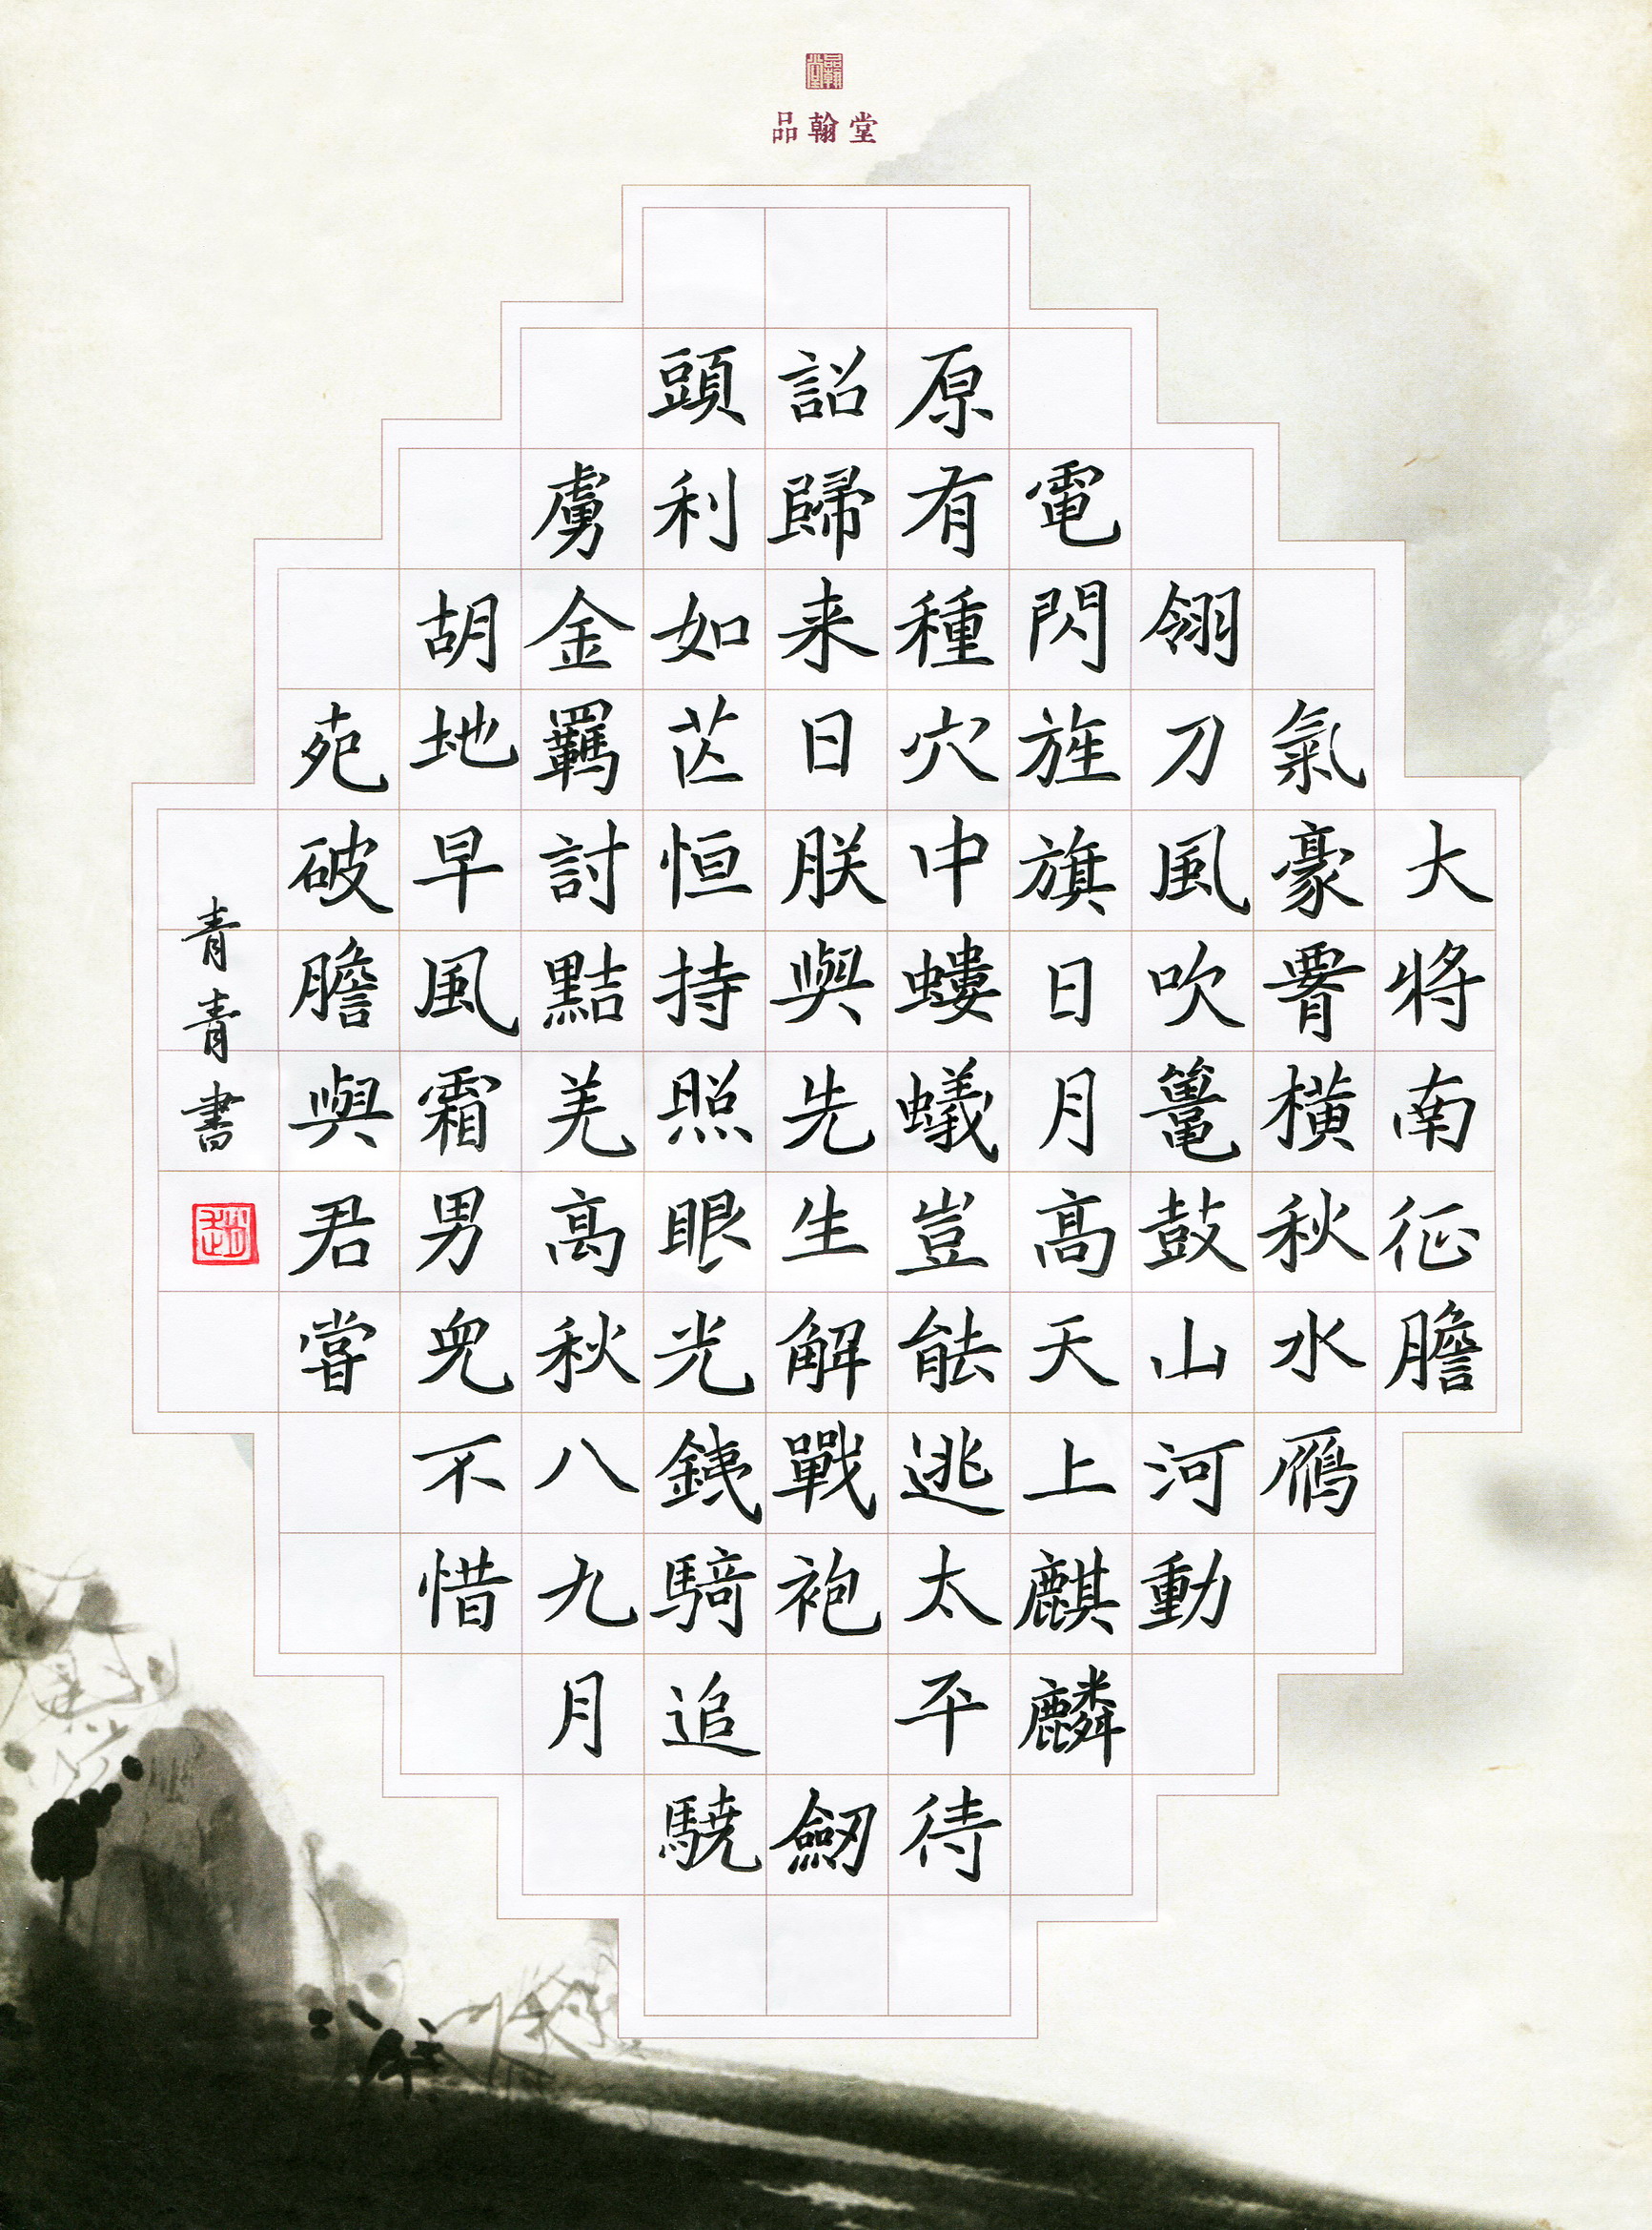 品翰堂
品翰堂
大將南征膽
氣豪腰橫秋水鴈
翎刀風吹鼉鼓山河動
電閃旌旗日月高天上麒麟
原有種穴中螻蟻豈能逃太平待
詔歸来日朕與先生解戰袍劒
頭利如芒恒持照眼光銕騎追驍
虜金羈討黠羌高秋八九月
胡地早風霜男兒不惜
死破膽與君嘗
青青書
趙